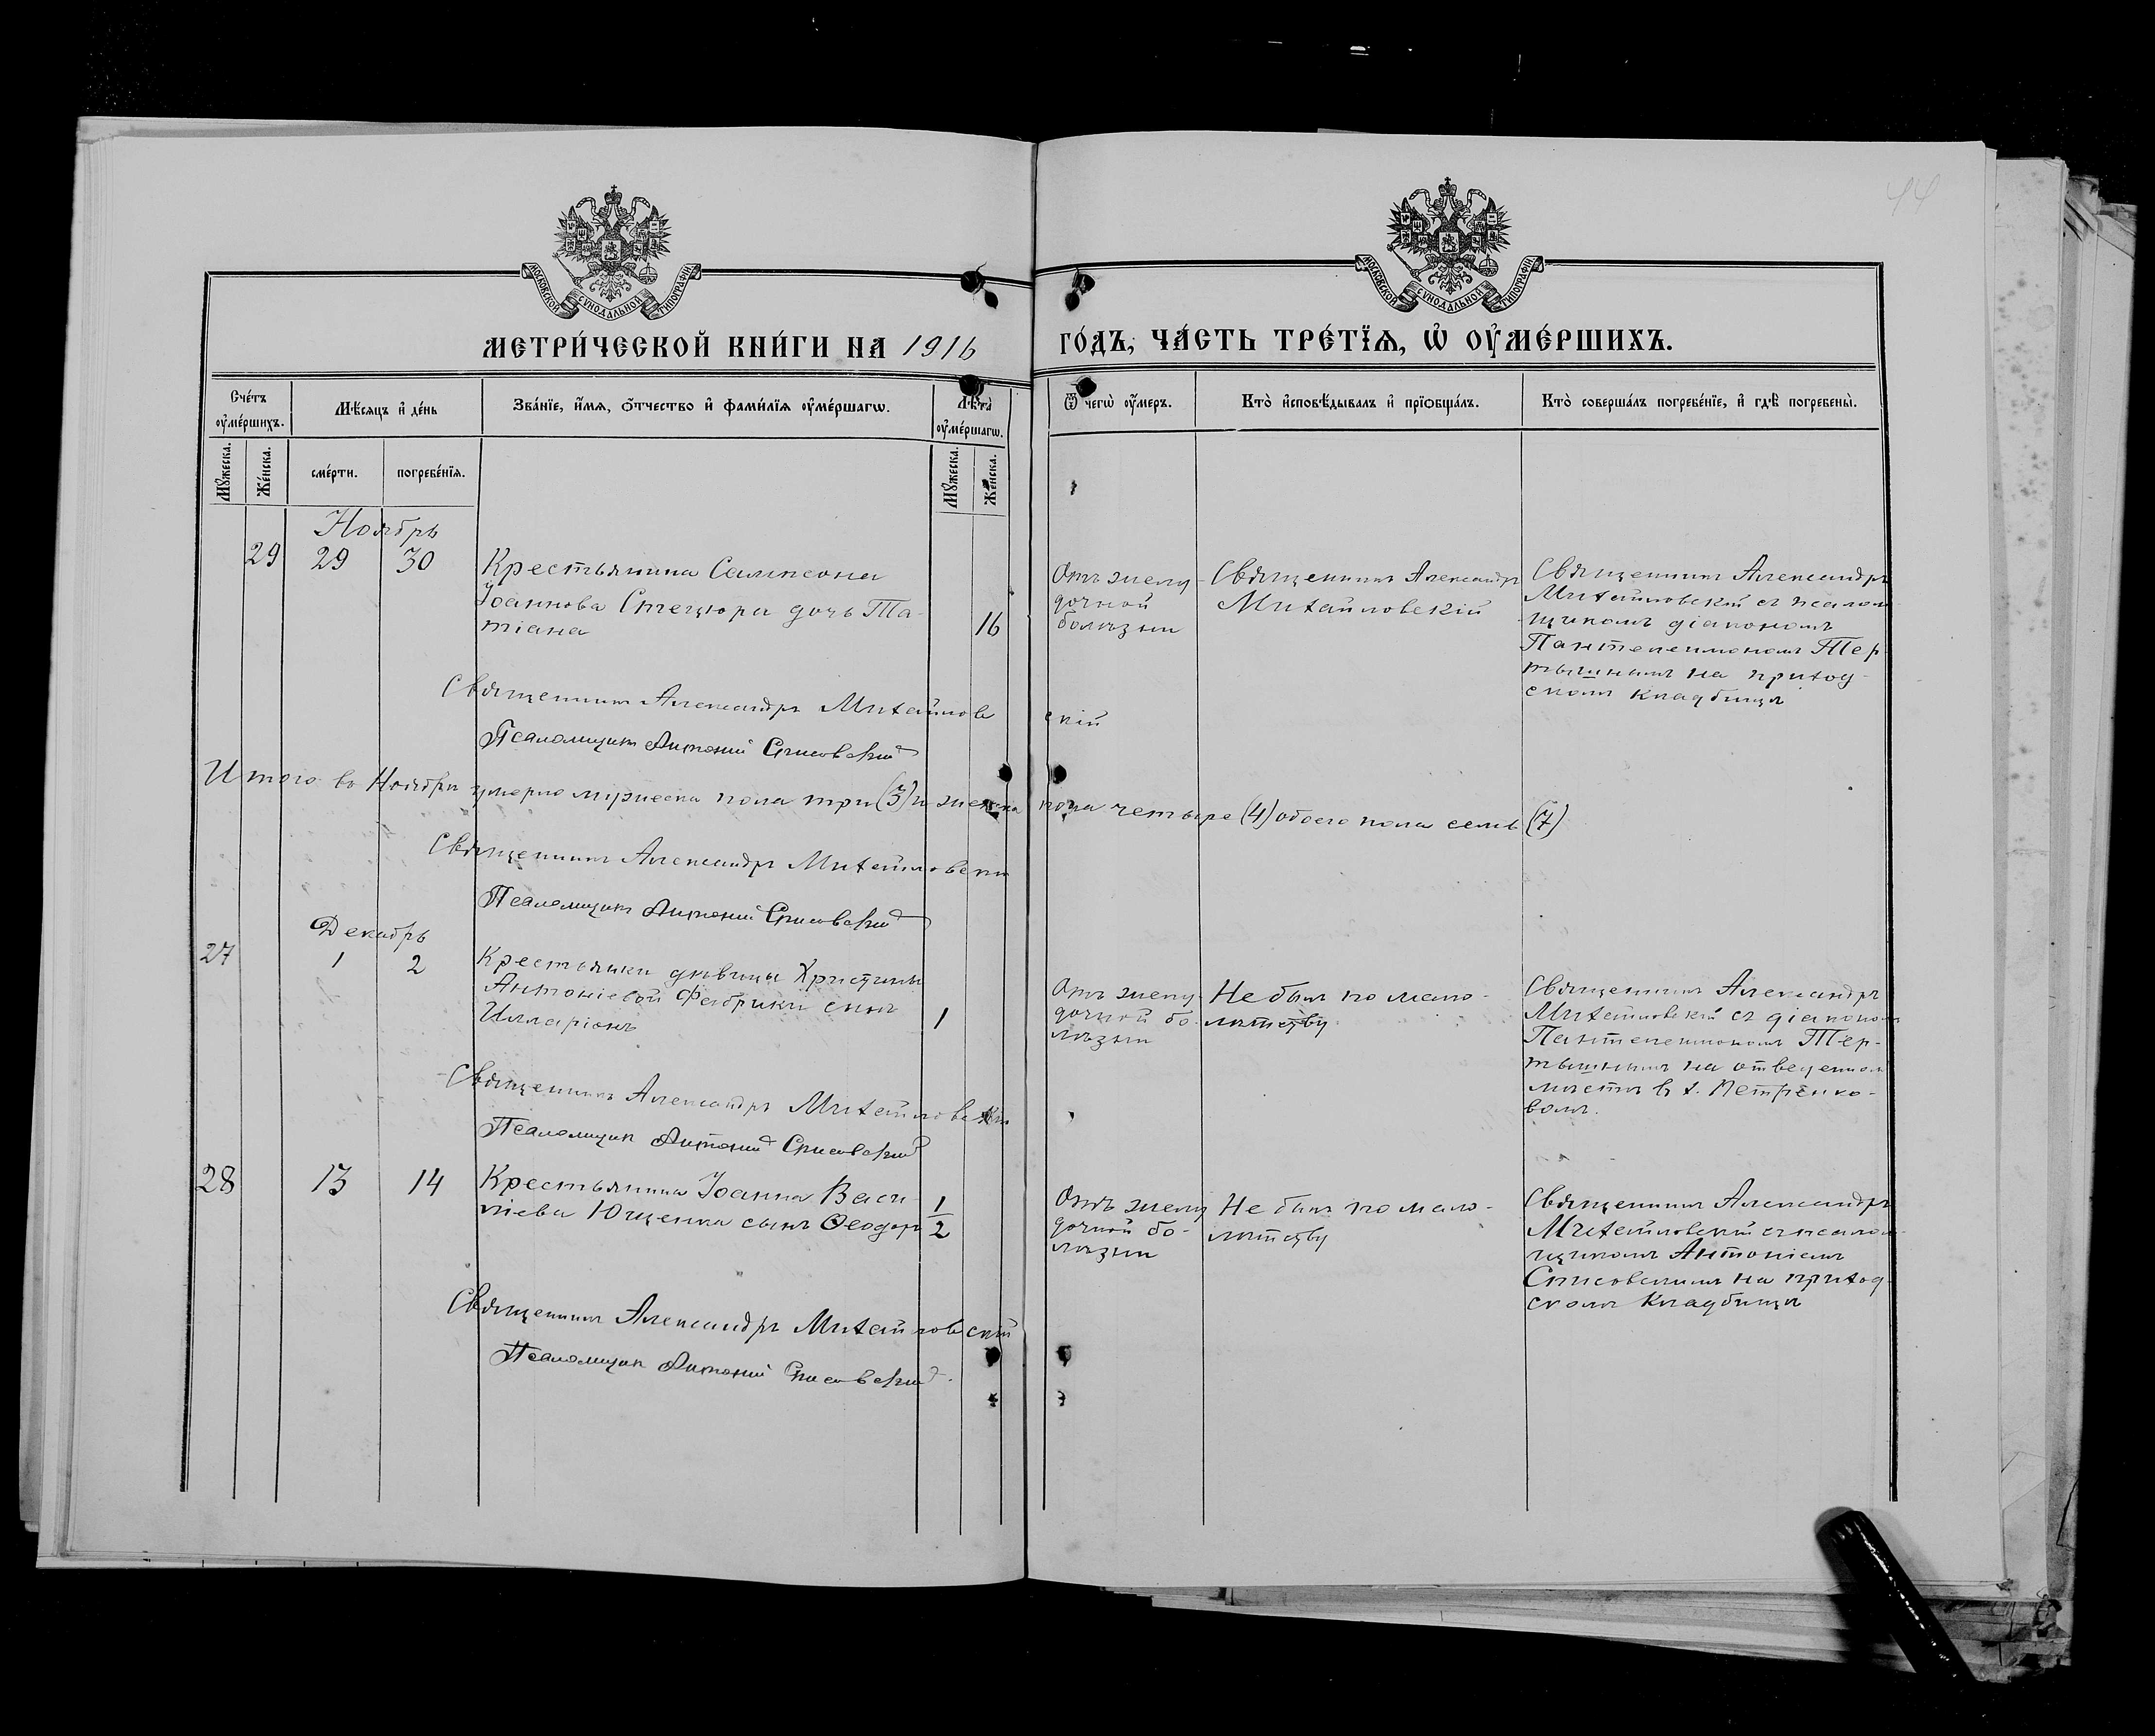 44
МОСКОВСКОЙ СѴНОДАЛЬНОЙ ТИПОГРАФІИ
МОСКОВСКОЙ СѴНОДАЛЬНОЙ ТИПОГРАФІИ
МЕТРИ́ЧЕСКОЙ КНИ́ГИ НА 1916 ГО́ДЪ, ЧА́СТЬ ТРЕ́ТЇѦ, Ѡ҆ ОУ҆МЕ́РШИХЪ.
Сче́тъ оу҆ме́ршихъ.
Мѣ́сѧцъ и҆ де́нь
Зва́нїе, и҆́мѧ, ѻ҆́тчество и҆ фами́лїѧ оу҆ме́ршагѡ.
Лѣ́та оу҆ме́ршагѡ.
Ѿ чегѡ̀ оу҆́меръ.
Кто̀ и҆сповѣ́дывалъ и҆ прїѡбща́лъ.
Кто̀ соверша́лъ погребе́нїе, и҆ гдѣ̀ погребены̀.
Мꙋ́жеска.
Же́нска.
сме́рти.
погребе́нїѧ.
Мꙋ́жеска.
Же́нска.
Ноябрь
29 29 30
Крестьянина Сампсона
Іоаннова Стецюра дочь Та-
тіана
16
Отъ желу-
дочной
болѣзни
Священникъ Александръ
Михайловскій
Священникъ Александръ
Михайловскій съ псалом-
щикомъ діакономъ
Пантелеимономъ Тер-
тышнымъ на приход-
скомъ кладбищѣ
Священникъ Александръ Михайловскій
Псаломщикъ Антоній
Итого въ Ноябрѣ умерло мужеска пола три (3) и женска пола четыре (4) обоего пола семь (7)
Священникъ Александръ Михайловскій
Псаломщикъ Антоній
Декабрь
27 1 2
Крестьянки дѣвицы Христины
Антоніевой Фабрики сынъ
Илларіонъ
1
Отъ желу-
дочной бо-
лѣзни
Не былъ по мало-
лѣтству
Священникъ Александръ
Михайловскій съ діакономъ
Пантелеимономъ Тер-
тышнымъ на отведенномъ
мѣстѣ въ х. Петренко-
вомъ.
Священникъ Александръ Михайловскій
Псаломщикъ Антоній
28 13 14
Крестьянина Іоанна Васи-
лiева Ющенка сынъ Ѳеодоръ
1/2
Отъ желу-
дочной бо-
лѣзни
Не былъ по мало-
лѣтству
Священникъ Александръ
Михайловскій съ псалом-
щикомъ Антоніемъ
на приход-
скомъ кладбищѣ
Священникъ Александръ Михайловскій
Псаломщикъ Антоній